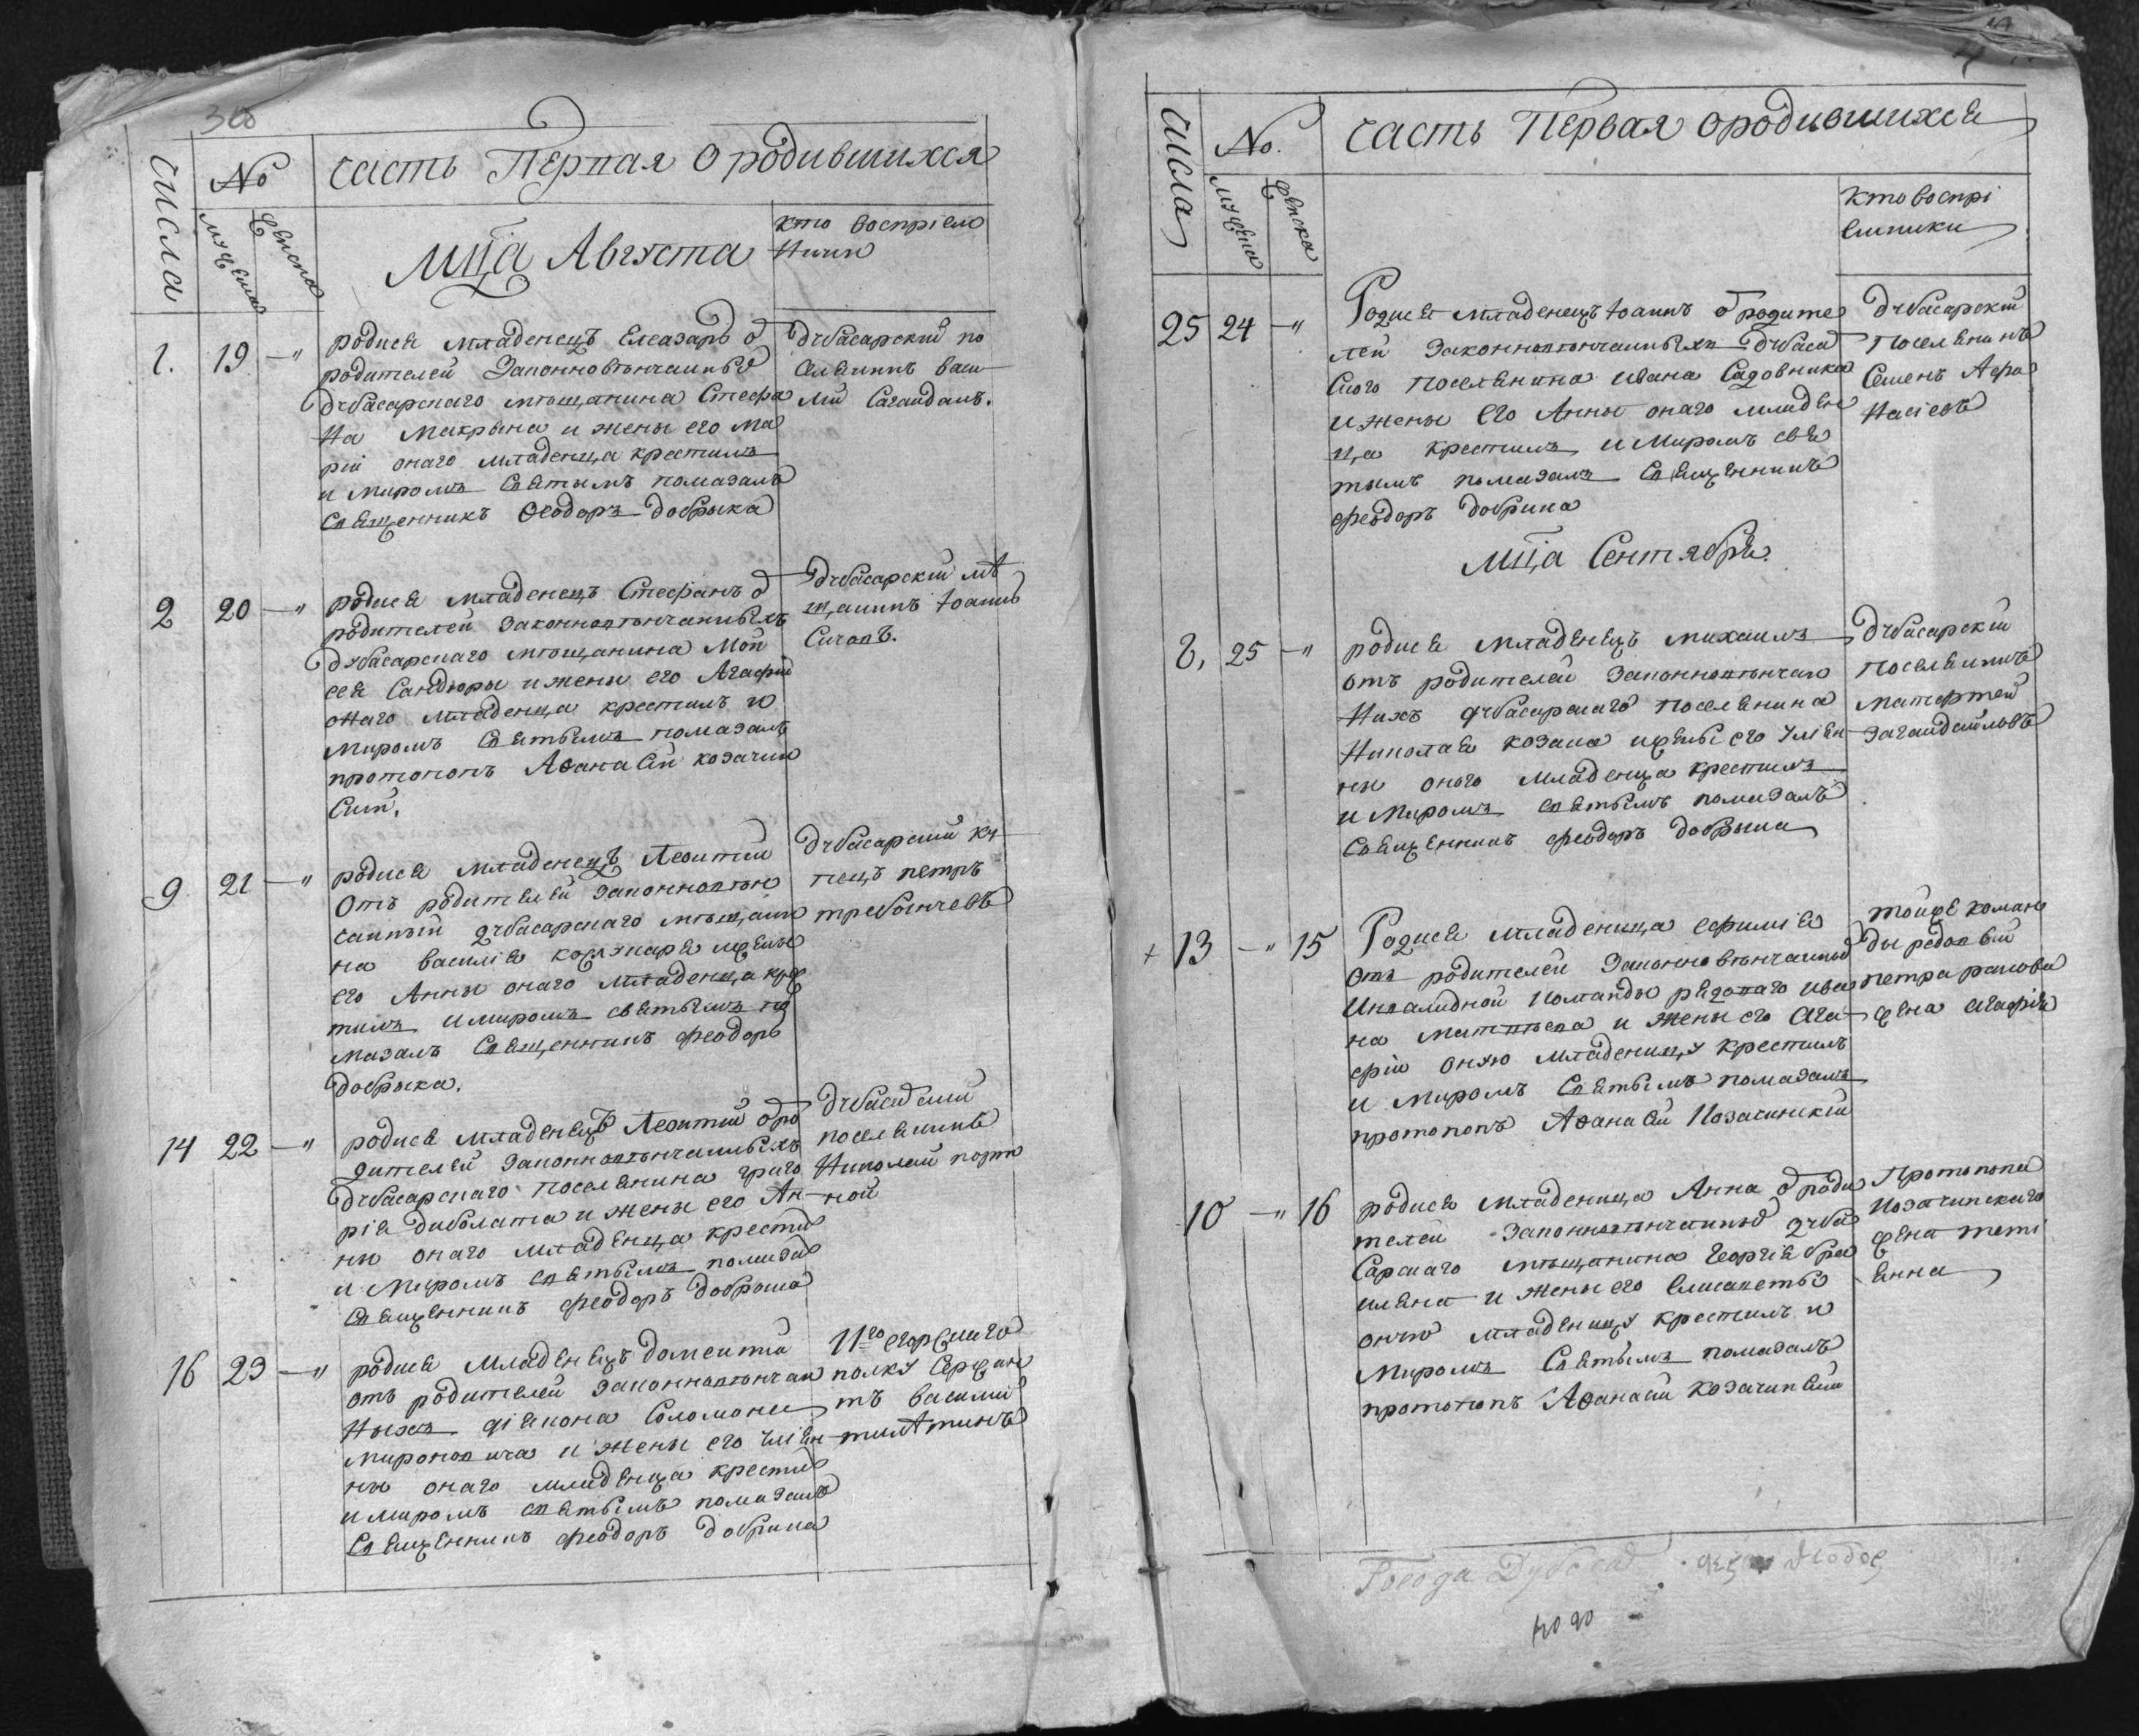 числа
№
часть Первая о родившихся
мужеска
женска
Мца Августа
кто воспріем
ники
1. 19 — "
родися младенецъ Елеазаръ ѿ
родителей Законновѣнчанныхъ
дубасарскаго мѣщанина Стефа
на Макрына и жены его Ма
ріи онаго младенца крестилъ
и миромъ святымъ помазалъ
священникъ Ѳеодоръ Добрыка
дубасарскій по
селянинъ васи
лій Сагайдакъ.
2 20 — "
родися младенецъ Стефанъ ѿ
родителей законновѣнчанныхъ
дубасарскаго мѣщанина Мой
сея Сандюры и жены его Агафіи
онаго младенца крестилъ и
миромъ святымъ помазалъ
протопопъ Аѳанасій козачин
скій.
дубасарскій мѣ
щанинъ Іоаннъ
Сичовъ.
9 21 — "
родися младенецъ Леонтій
Отъ родителей законновѣн
чанныхъ дубасарскаго мѣщани
на василія кожухаря и жены
его Анны онаго младенца крес
тилъ и миромъ святымъ по
мазалъ священникъ феодоръ
добрыка.
дубасарскій ку
пецъ петръ
14 22 — "
родися младенецъ Леонтій ѿ ро
дителей законновѣнчанныхъ
дубасарскаго поселянина григо
рія диболата и жены его Ан
ны онаго младенца крестилъ
и миромъ святымъ помазалъ
священникъ феодоръ добрыка
поселянинъ
Николай порт
ной
16 23 — "
родися младенецъ доментій
отъ родителей законновѣнчан
ныхъ діякона Соломона
мироновича и жены его Улян
ны онаго младенца крестилъ
и миромъ святымъ помазалъ
священникъ феодоръ добрыка
11го егарскаго
полку Сержан
тъ василій
числа
№.
часть Первая о родившихся
мужеска
женска
Кто воспрі
емники
25 24 — "
Родися младенецъ Іоаннъ ѿ родите
лей Законновѣнчанныхъ дубаса
скаго поселянина Ивана Садовника
и жены его Анны онаго младен
ца крестилъ и Миромъ свя
тымъ помазалъ священникъ
феодоръ добрыка
дубасарскій
поселянинъ
Семенъ Афа
насіевъ
Мца Сентября
8, 25 — "
родися младенецъ михаилъ
отъ родителей законновѣнчан
ныхъ дубасарскаго поселянина
Николая козака и жены его Улян
ны онаго младенца крестилъ
и миромъ святымъ помазалъ
священникъ феодоръ добрыка
дубасарскій
поселянинъ
+ 13 — " 15
Родися младеница ефимія
отъ родителей законновѣнчанныхъ
Инвалидной команды рядоваго ива
на матвѣева и жены его ага
фіи оную младеницу крестилъ
и миромъ святымъ помазалъ
протопопъ Аѳанасій Козачинскій
тойже коман
ды рядовый
петра ракова
жена агафія
10 — " 16
родися младеница Анна ѿ роди
телей законновѣнчанныхъ дуба
сарскаго мѣщанина георгія бра
иляна и жены его Елисаветы
оную младеницу крестилъ и
миромъ святымъ помазалъ
протопопъ Аѳанасій козачинскій
Протопопа
козачинскаго
жена тати
янна